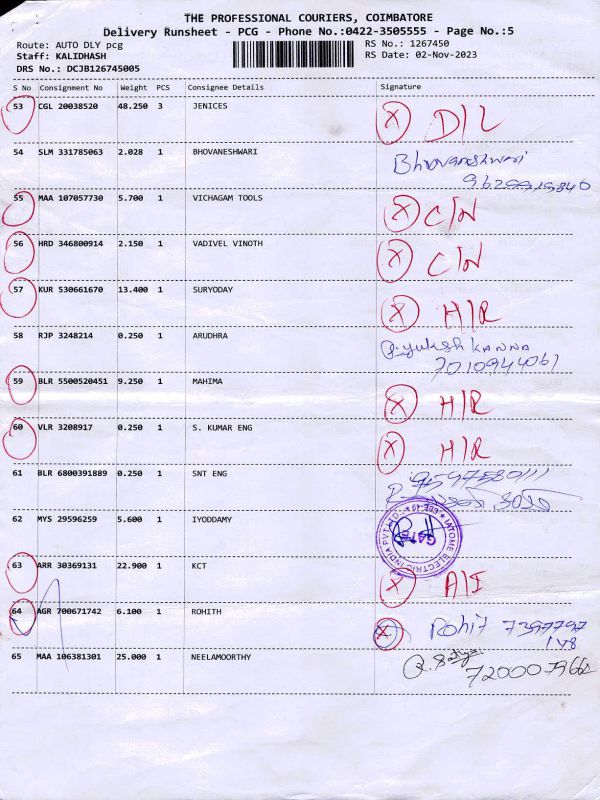 THE PROFESSIONAL COURIERS, COIMBATORE
Delivery Runsheet - PCG - Phone No.:0422-3505555 - Page No.:5
Route: AUTO DLY pcg RS No.: 1267450
Staff: KALIDHASH RS Date: 02-Nov-2023
DRS No.: DCJB126745005
S No Consignment No Weight PCS Consignee Details Signature
53 CGL 20038520 48.250 3 JENICES X D/L
54 SLM 331785063 2.028 1 BHOVANESHWARI Bhuvaneshwari
55 MAA 107057730 5.700 1 VICHAGAM TOOLS X C/N
56 HRD 346800914 2.150 1 VADIVEL VINOTH X C/N
57 KUR 530661670 13.400 1 SURYODAY X H/R
58 RJP 3248214 0.250 1 ARUDHRA KANNA
7010944061
59 BLR 5500520451 9.250 1 MAHIMA X H/R
60 VLR 3208917 0.250 1 S. KUMAR ENG X H/R
61 BLR 6800391889 0.250 1 SNT ENG
62 MYS 29596259 5.600 1 IYODDAMY
ELECTRIC INDIA PVT. LTD.
GATE
63 ARR 30369131 22.900 1 KCT X A/I
64 AGR 700671742 6.100 1 ROHITH X Rohit 7397797
148
65 MAA 106381301 25.000 1 NEELAMOORTHY